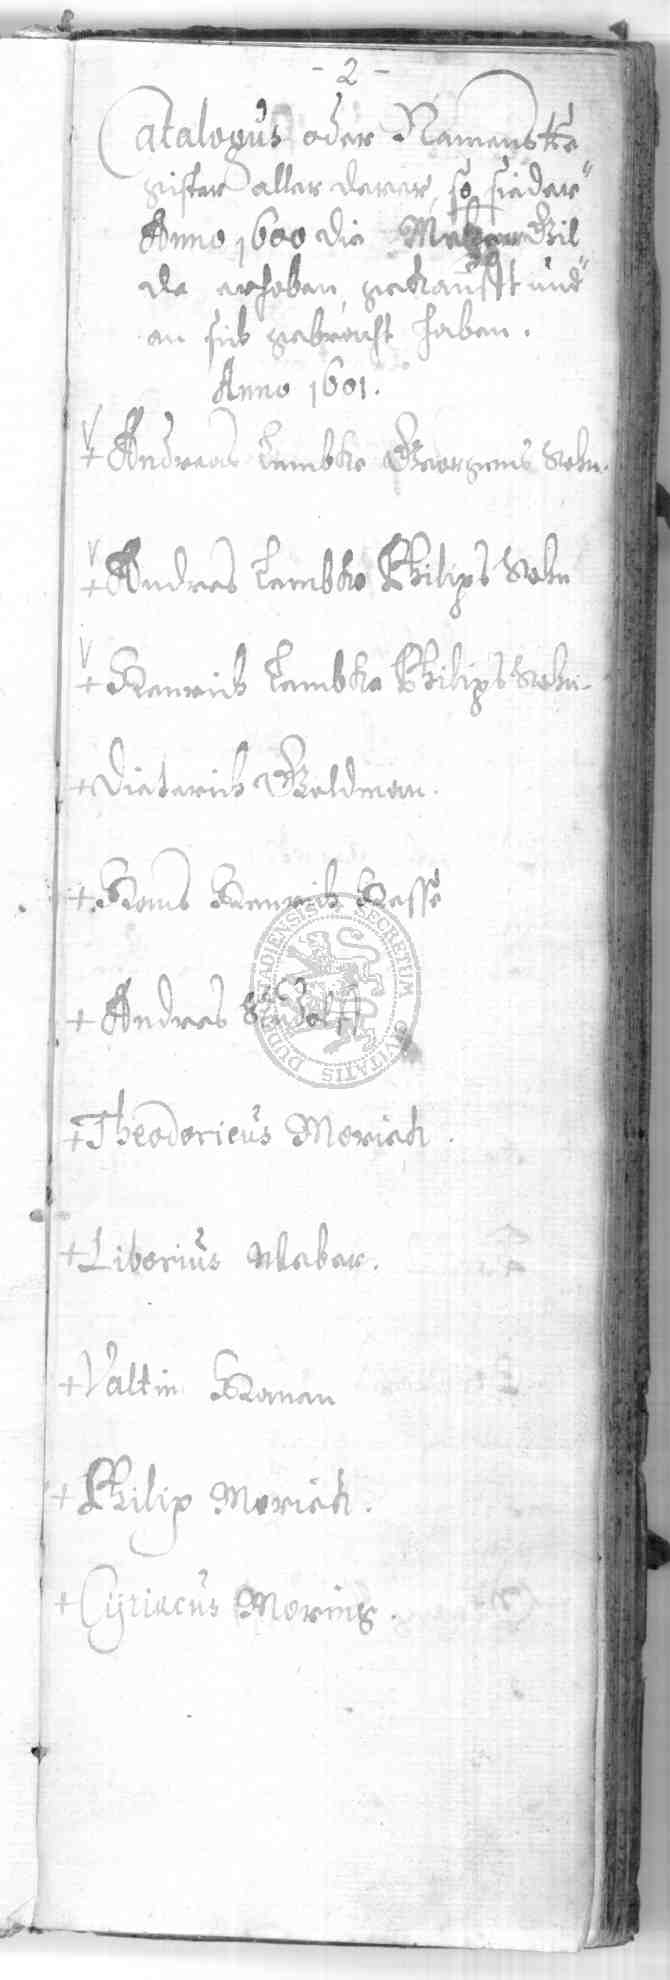 - 2 -
Catalogus oder Namens Re
gister aller derer, so sieder
Anno 1600 die Metzger Gil
de erhoben, gekaufft und
an sich gebracht haben.
Anno 1601.
+ Andreas Lembke Georgens Sohn.
+ Andres Lembke Philips Sohn
+ Henrich Lembke Philips Sohn.
+ Dieterich Goldman.
+ Hans Henrich Hesse
+ Andres
+ Theodoricus Morick.
+ Liborius Weber.
+ Valtin Hanen
+ Philip Morick.
+ Cyriacus Moring.
SECRETUM CIVITATIS DUDERSTADIENSIS